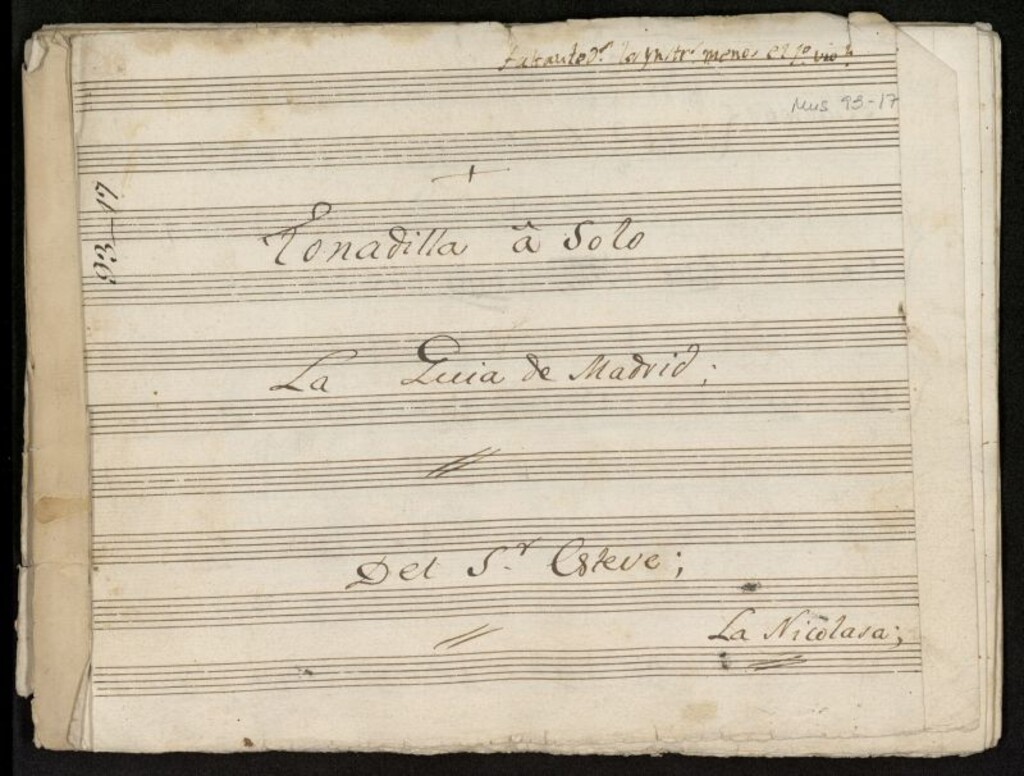 los ynstr.s menos el 1.o vio.n
Mus 93-17
93-17
Tonadilla â Solo
La Guia de Madrid;
Del S.r Esteve;
La Nicolasa;